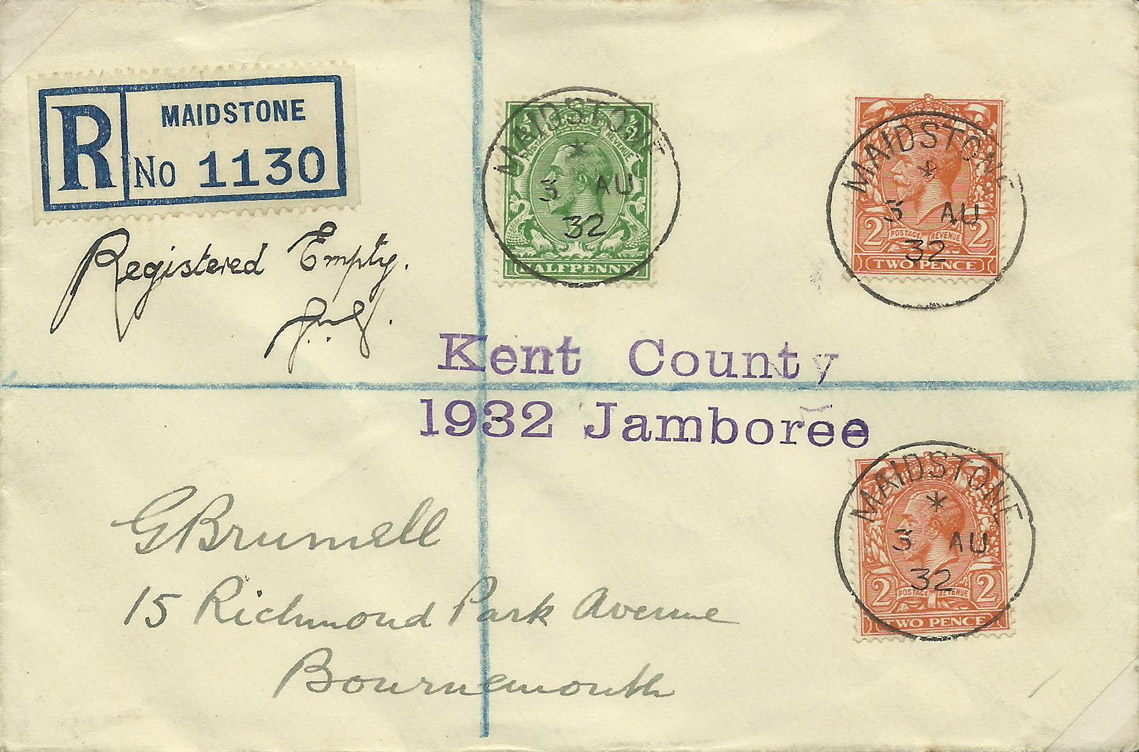 R MAIDSTONE
No 1130
Registered Empty.
MAIDSTONE
3 AU
32
½ ½
POSTAGE REVENUE
HALFPENNY
MAIDSTONE
3 AU
32
POSTAGE REVENUE
2 2
TWO PENCE
Kent County
1932 Jamboree
MAIDSTONE
3 AU
32
2 2
POSTAGE REVENUE
TWO PENCE
G Brumell
15 Richmond Park Avenue
Bournemouth